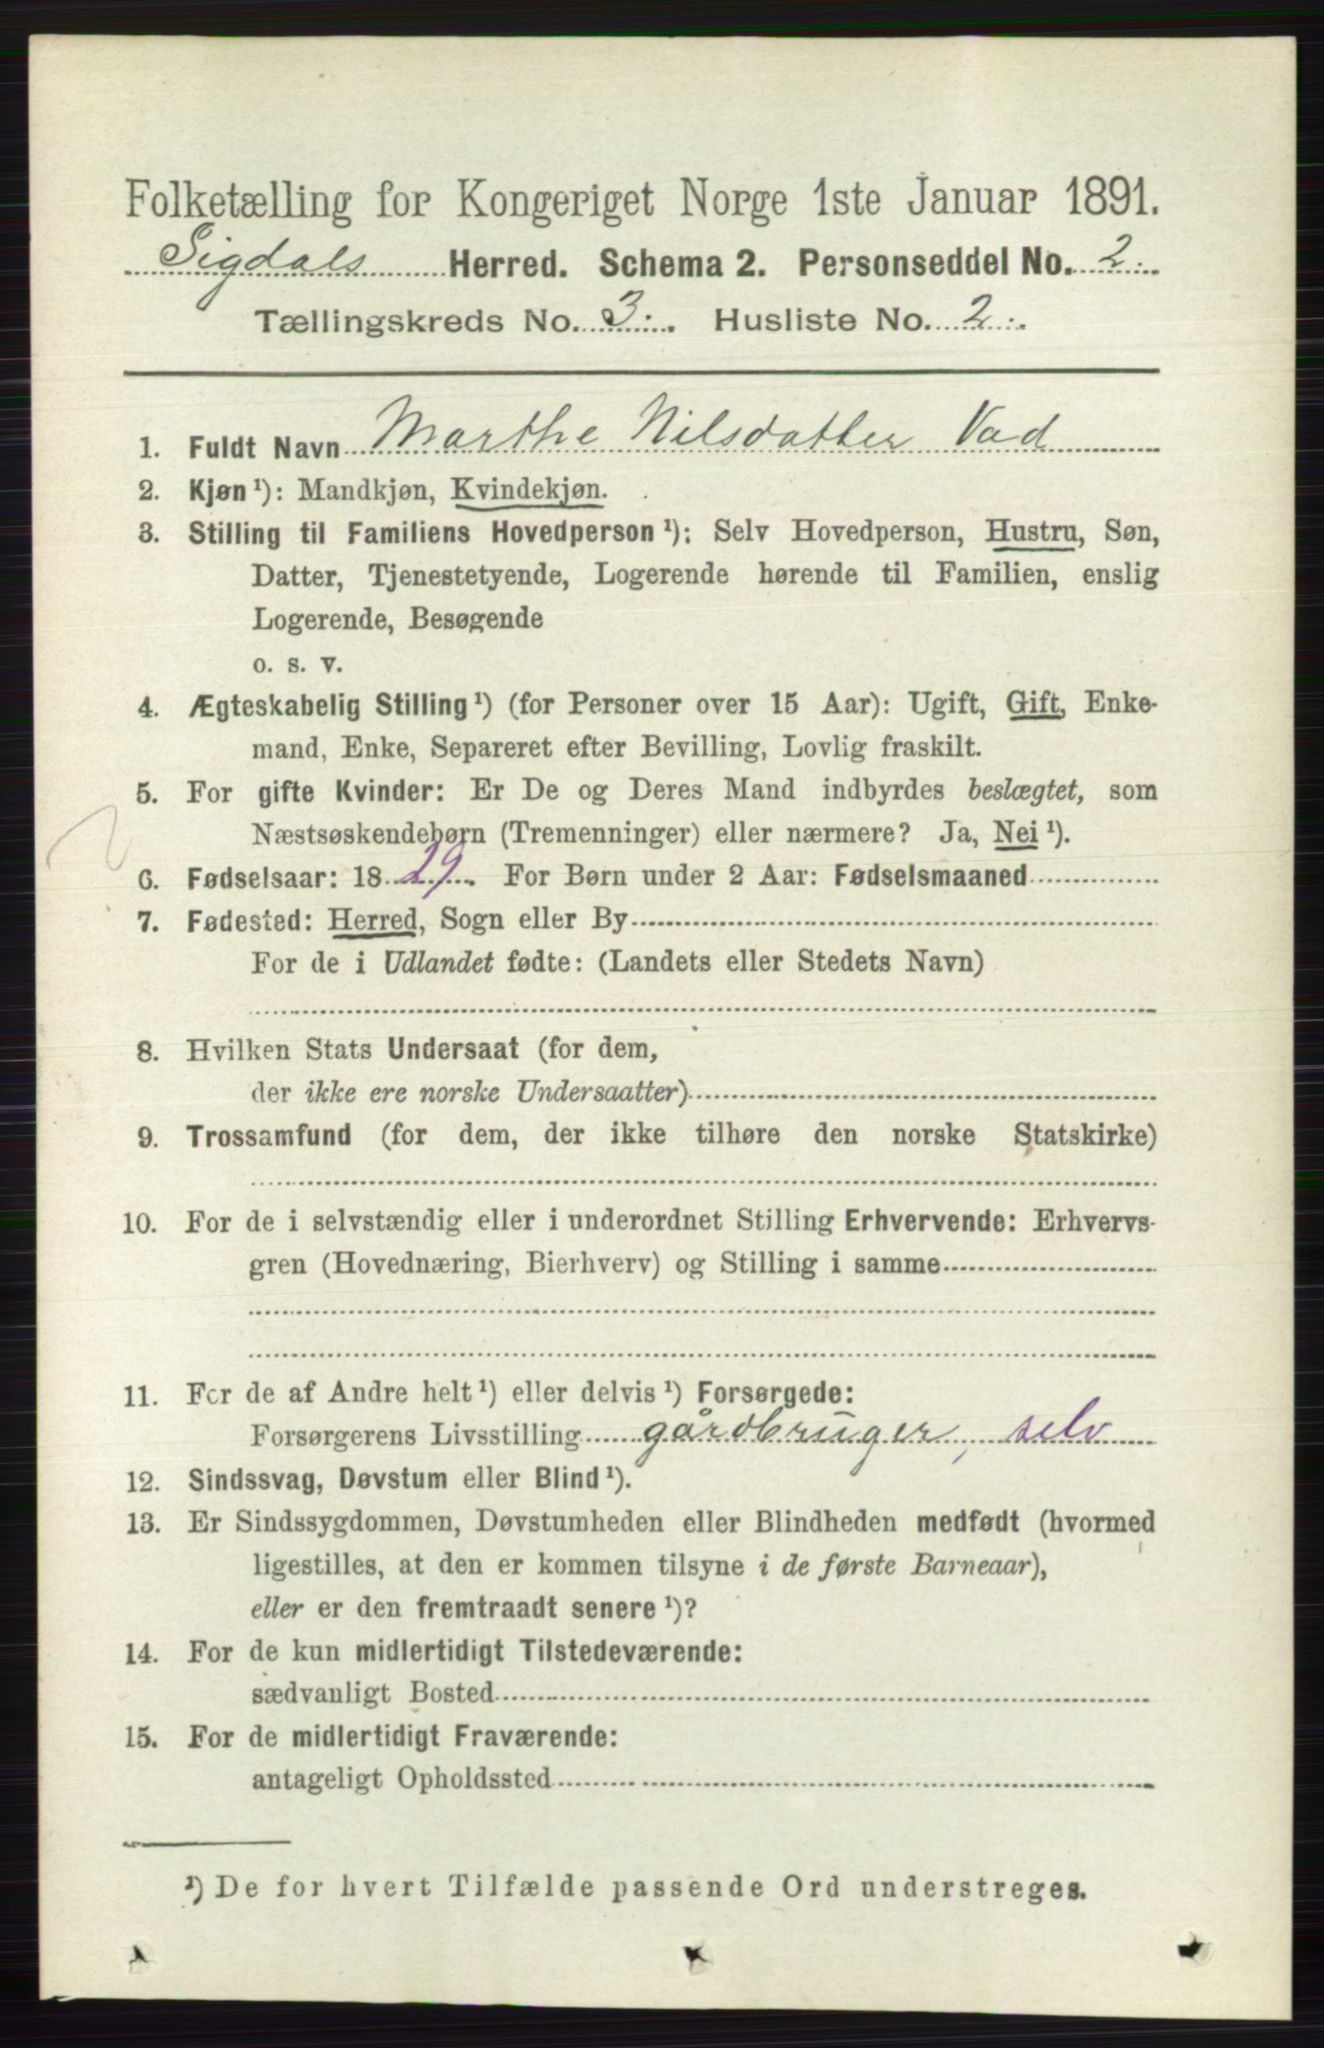 Folketælling for Kongeriget Norge 1ste Januar 1891.
Sigdals Herred. Schema 2. Personseddel No. 2.
Tællingskreds No. 3. Husliste No. 2.
1. Fuldt Navn Marthe Nilsdatter Vad
2. Kjøn ¹): Mandkjøn, Kvindekjøn.
3. Stilling til Familiens Hovedperson ¹): Selv Hovedperson, Hustru, Søn,
Datter, Tjenestetyende, Logerende hørende til Familien, enslig
Logerende, Besøgende
o. s. v.
4. Ægteskabelig Stilling ¹) (for Personer over 15 Aar): Ugift, Gift, Enke-
mand, Enke, Separeret efter Bevilling, Lovlig fraskilt.
5. For gifte Kvinder: Er De og Deres Mand indbyrdes beslægtet, som
Næstsøskendebørn (Tremenninger) eller nærmere? Ja, Nei ¹).
6. Fødselsaar: 1829. For Børn under 2 Aar: Fødselsmaaned
7. Fødested: Herred, Sogn eller By
For de i Udlandet fødte: (Landets eller Stedets Navn)
8. Hvilken Stats Undersaat (for dem,
der ikke ere norske Undersaatter)
9. Trossamfund (for dem, der ikke tilhøre den norske Statskirke)
10. For de i selvstændig eller i underordnet Stilling Erhvervende: Erhvervs-
gren (Hovednæring, Bierhverv) og Stilling i samme
11. For de af Andre helt ¹) eller delvis ¹) Forsørgede:
Forsørgerens Livsstilling gårdbruger, selv
12. Sindssvag, Døvstum eller Blind ¹).
13. Er Sindssygdommen, Døvstumheden eller Blindheden medfødt (hvormed
ligestilles, at den er kommen tilsyne i de første Barneaar),
eller er den fremtraadt senere ¹)?
14. For de kun midlertidigt Tilstedeværende:
sædvanligt Bosted
15. For de midlertidigt Fraværende:
antageligt Opholdssted
¹) De for hvert Tilfælde passende Ord understreges.